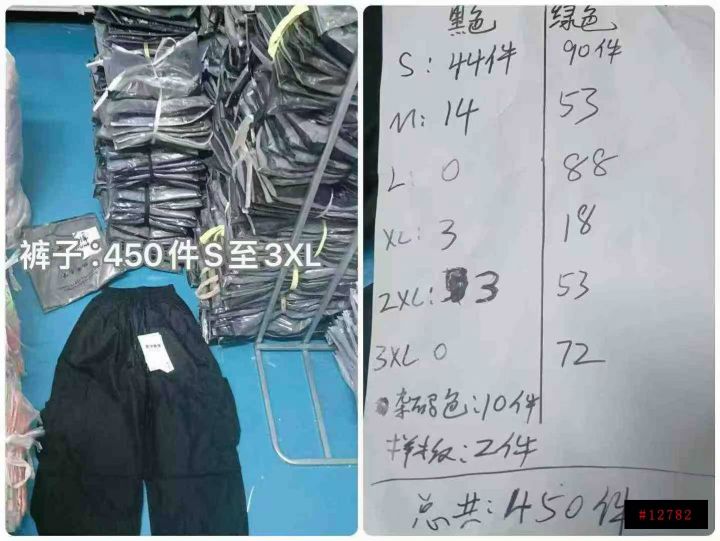 裤子:450件S至3XL
黑色 绿色
S: 44件 90件
M: 14 53
L: 0 88
XL: 3 18
2XL: 3 53
3XL 0 72
杂码色:10件
样板:2件
总共:450件
#12782